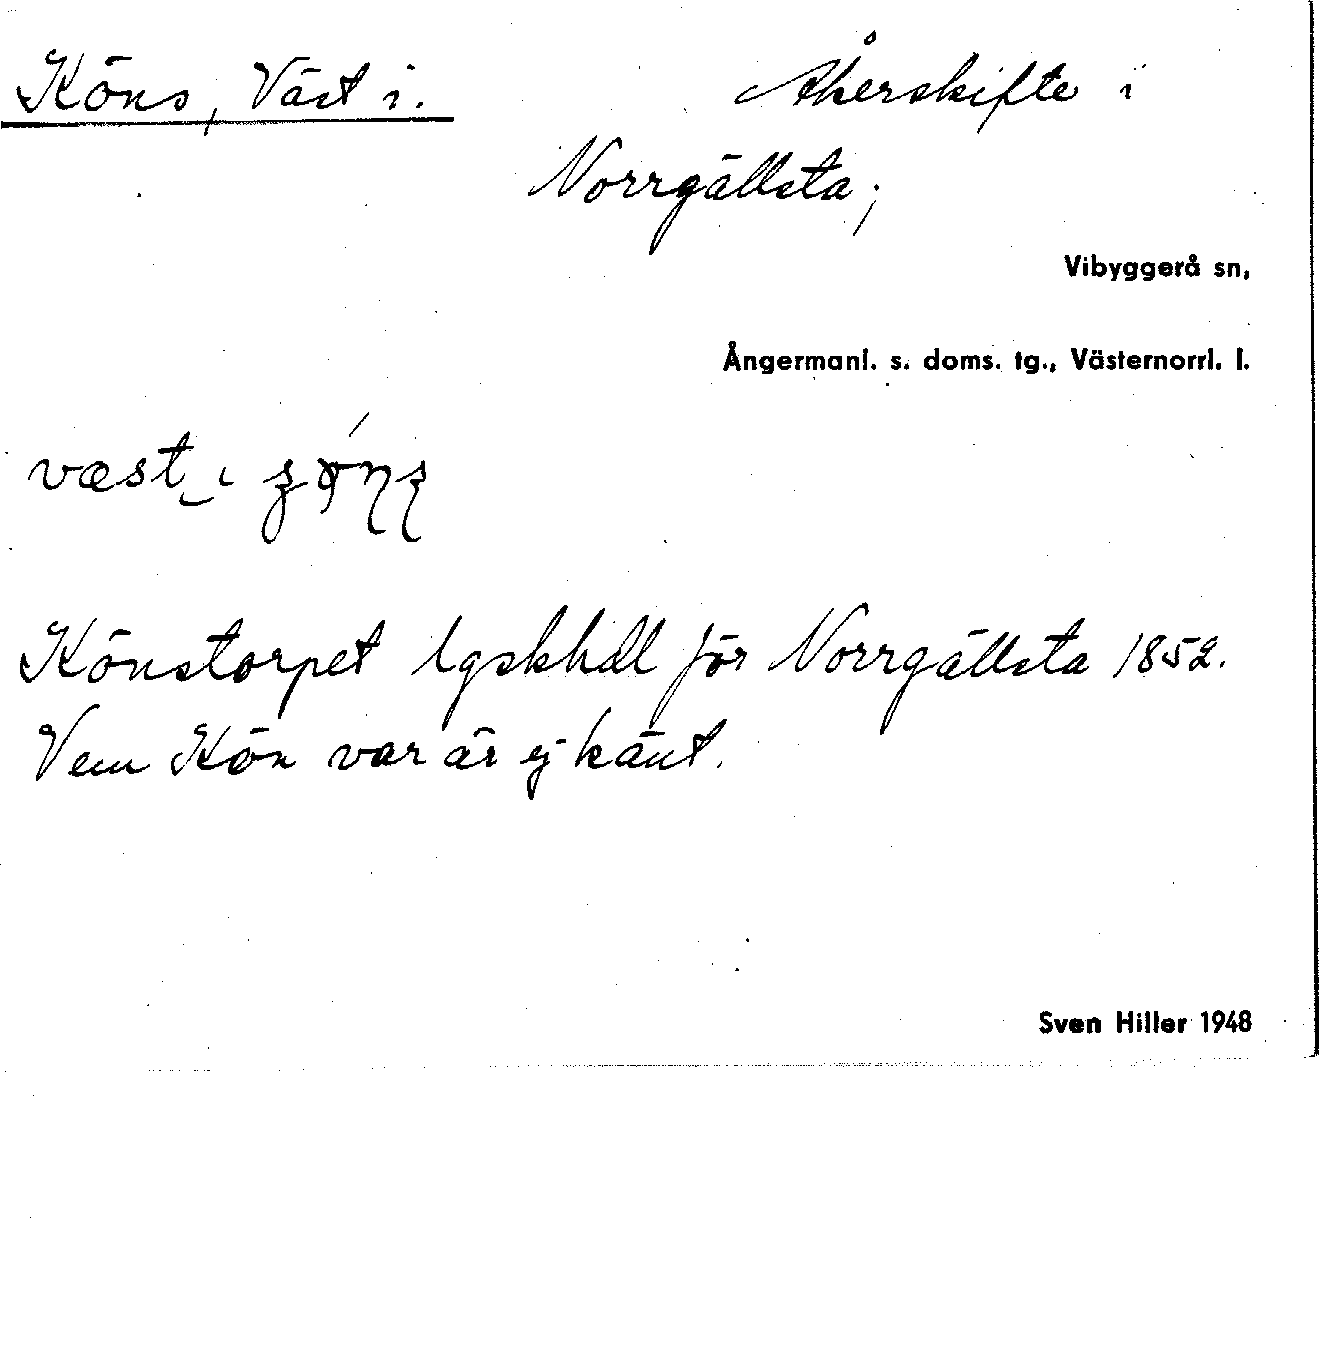 Köns, Väst i.
Åkerskifte i
Norrgällsta;
Vibyggerå sn,
Ångermanl. s. doms. tg., Västernorrl. l.
Könstorpet lgskhdl för Norrgällsta 1852.
Vem Kön var är ej känt.
Sven Hiller 1948